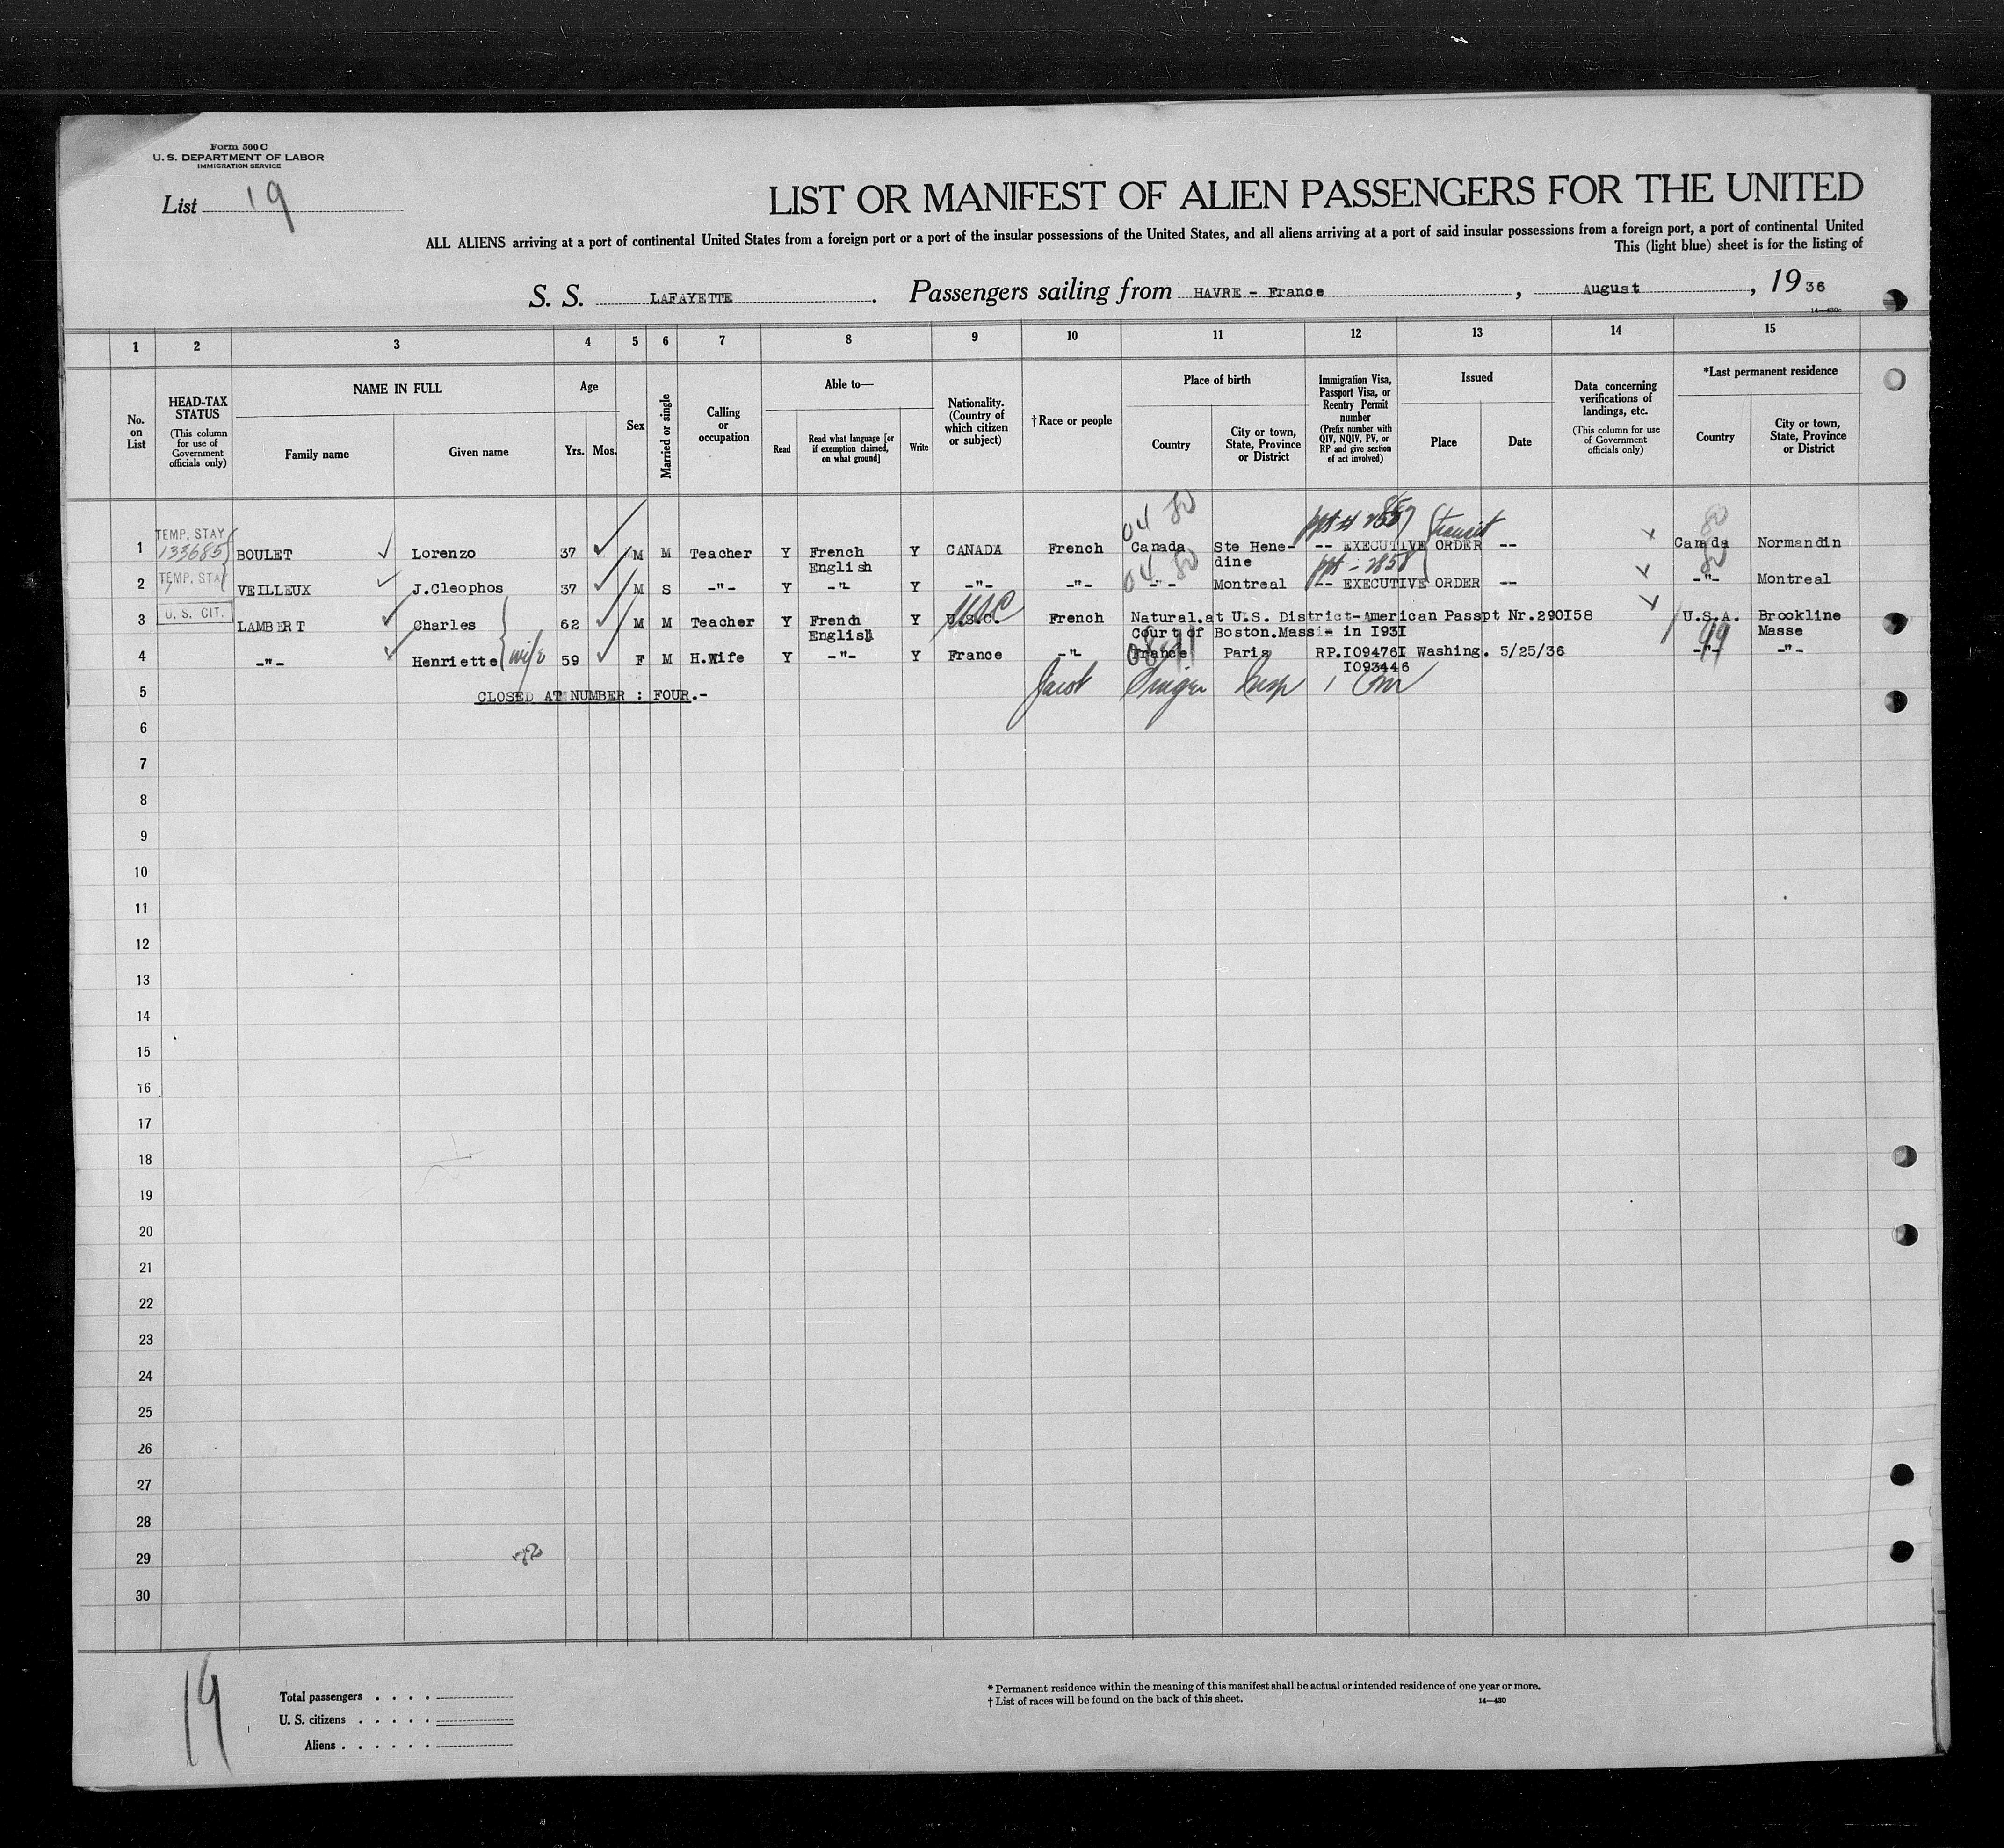 Form 500 C
U. S. DEPARTMENT OF LABOR
IMMIGRATION SERVICE
List 19
LIST OR MANIFEST OF ALIEN PASSENGERS FOR THE UNITED
ALL ALIENS arriving at a port of continental United States from a foreign port or a port of the insular possessions of the United States, and all aliens arriving at a port of said insular possessions from a foreign port, a port of continental United
This (light blue) sheet is for the listing of
S. S. LAFAYETTE . Passengers sailing from HAVRE - France , August , 19 36
14—430c
1 2 3 4 5 6 7 8 9 10 11 12 13 14 15
No. on List
HEAD-TAX STATUS (This column for use of Government officials only)
NAME IN FULL
Family name
Given name
Age
Yrs. Mos.
Sex
Married or single
Calling or occupation
Able to—
Read
Read what language [or if exemption claimed, on what ground]
Write
Nationality. (Country of which citizen or subject)
†Race or people
Place of birth
Country
City or town, State, Province or District
Immigration Visa, Passport Visa, or Reentry Permit number (Prefix number with QIV, NQIV, PV, or RP and give section of act involved)
Issued
Place
Date
Data concerning verifications of landings, etc. (This column for use of Government officials only)
*Last permanent residence
Country
City or town, State, Province or District
04 80 transit 80
1 TEMP. STAY 133685 BOULET Lorenzo 37 M M Teacher Y French English Y CANADA French Canada Ste Hene-dine -- EXECUTIVE ORDER -- Canada Normandin
04 80 ppt - 2858 80
2 TEMP. STAY VEILLEUX J.Cleophos 37 M S -"- Y -"- Y -"- -"- -"- Montreal -- EXECUTIVE ORDER -- -"- Montreal
3 U. S. CIT. LAMBERT Charles 62 M M Teacher Y French English Y U.S.C. USC French Natural.at U.S. District-American Passpt Nr.290I58 U.S.A. Brookline Masse
Court of Boston.Mass - in I93I
4 -"- Henriette wife 59 F M H.Wife Y -"- Y France -"- France Paris RP.I09476I Washing. 5/25/36 99 -"- -"-
I093446
5 CLOSED AT NUMBER : FOUR.- Jacob Singer Insp
6
7
8
9
10
11
12
13
14
15
16
17
18
19
20
21
22
23
24
25
26
27
28
29
30
19
Total passengers . . . .
U. S. citizens . . . . .
Aliens . . . . . .
* Permanent residence within the meaning of this manifest shall be actual or intended residence of one year or more.
† List of races will be found on the back of this sheet. 14—430